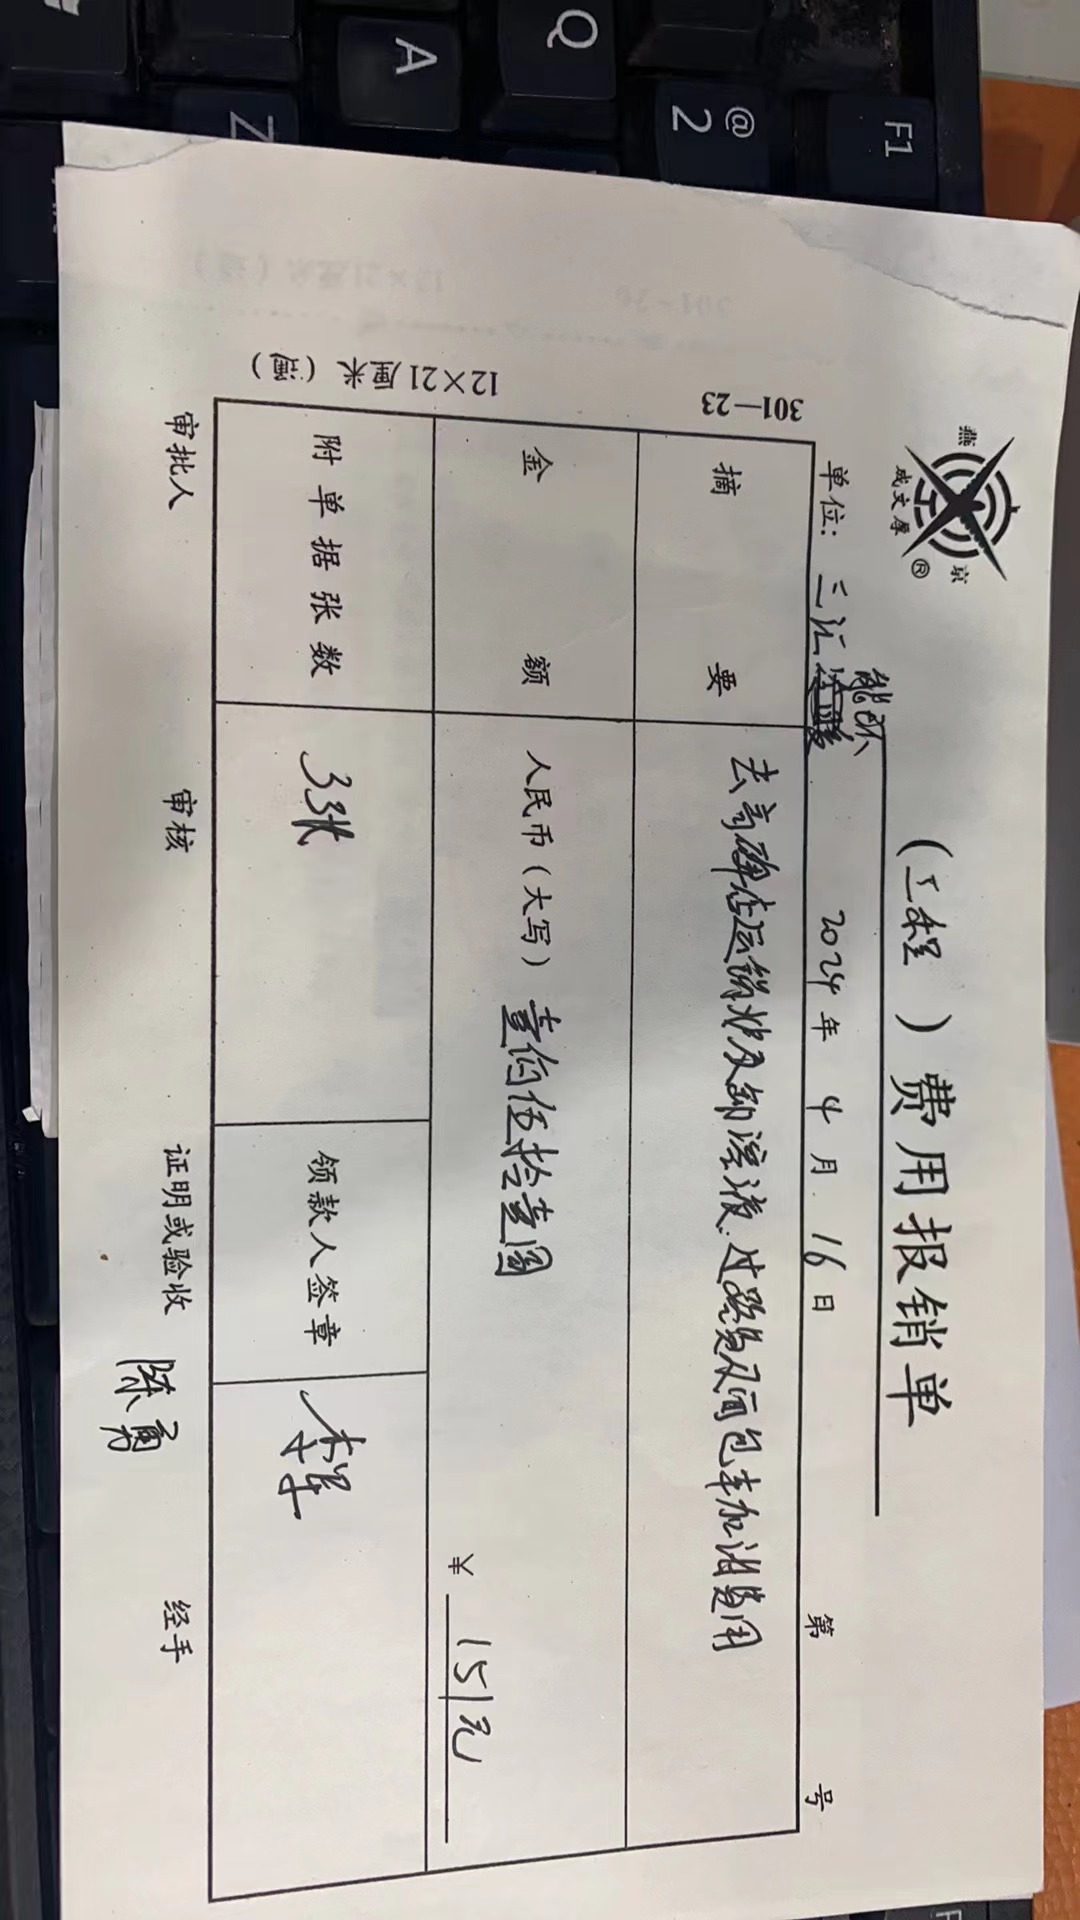 燕京
成文厚®
(工程)费用报销单
单位:三汇能环 2024年4月16日 第 号
301—23
摘要 去高碑店运锅炉及卸溶液.过路费及面包车加油费用
金额 人民币(大写)壹佰伍拾壹圆
¥ 151元
附单据张数 3张 领款人签章
12×21厘米(薄)
审批人 审核 证明或验收 陈勇 经手
F1
@
2
Q
A
Z